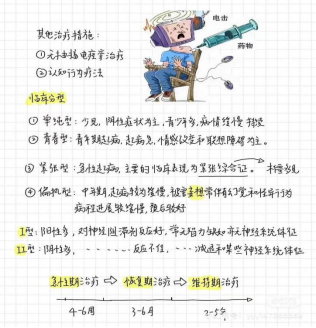 电击
药物
其他治疗措施:
①无抽搐电痉挛治疗
②认知行为疗法
临床分型
① 单纯型: 少见, 阴性症状为主, 青少年多, 病情缓慢 持续
② 青春型: 青年期起病, 起病急, 情感改变和联想障碍为主。
③ 紧张型: 急性起病, 主要的临床表现为紧张综合征。
④ 偏执型: 中年期, 起病较为缓慢, 被害妄想常伴有幻觉和怪异行为
病程进展较缓慢, 预后较好
I型: 阳性多, 对神经阻滞剂反应好, 无认知缺陷和神经系统体征
II型: 阴性多, -------反应不佳, ---减退和某些神经系统体征
急性期治疗 ⇨ 恢复期治疗 ⇨ 维持期治疗
4-6周 3-6月 2-5年